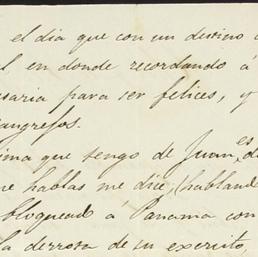 el dia que con un destino
en donde recordando á
saria para ser felices, y
angrejos.
ima que tengo de Juan, es d
me hablas me dice, (habland
bloquead á Panama con
la derrota de su exercito,